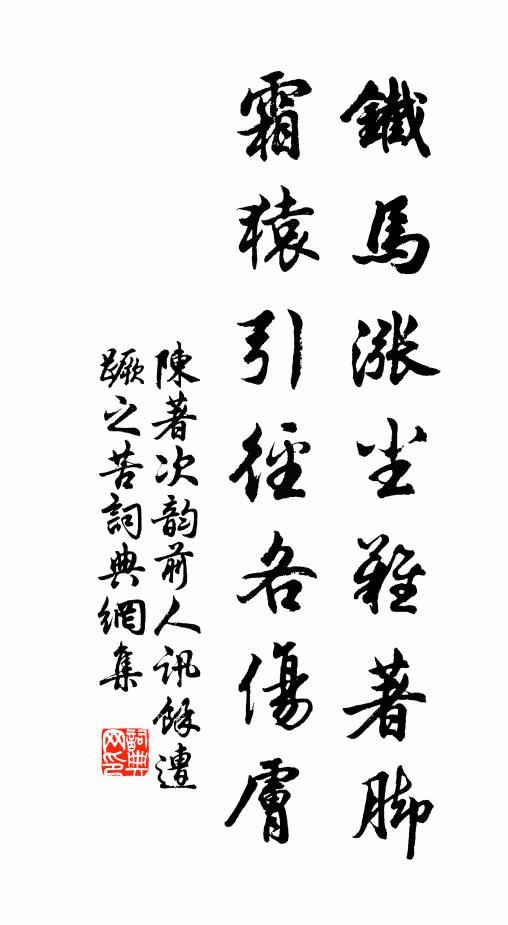 鐵馬漲尘難著脚
霜猿引徑各傷膚
陳著次韵前人訊餘遭
蹶之苦詞典網集
詞典网印